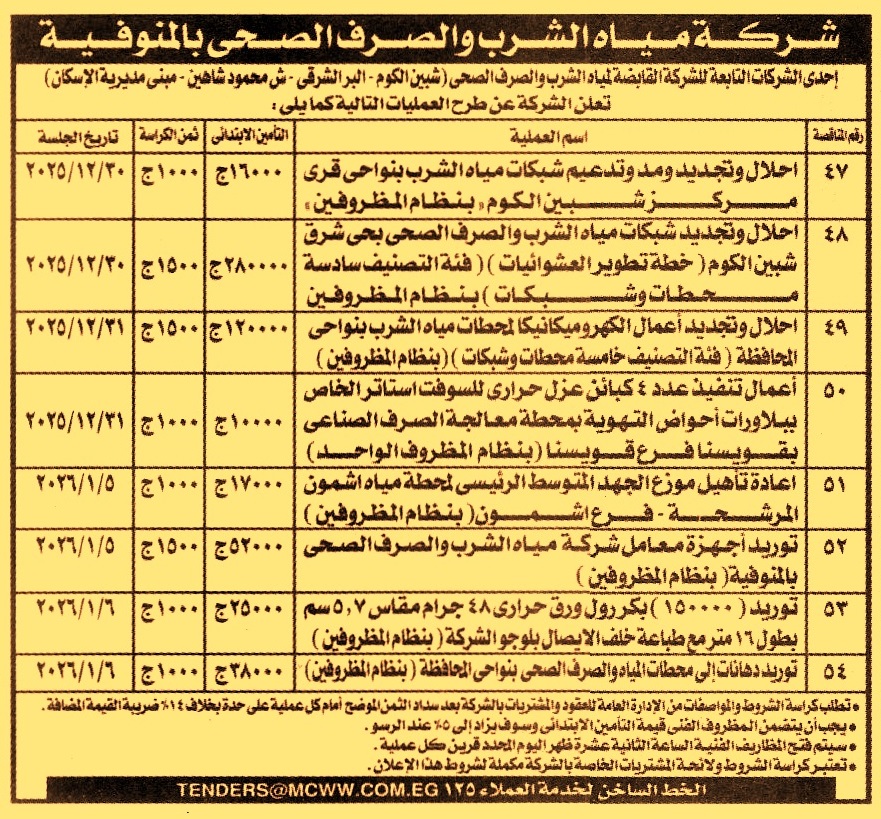 شركة مياه الشرب والصرف الصحى بالمنوفية
إحدى الشركات التابعة للشركة القابضة لمياه الشرب والصرف الصحى (شبين الكوم - البر الشرقى - ش محمود شاهين - مبنى مديرية الإسكان)
تعلن الشركة عن طرح العمليات التالية كما يلى :
رقم المناقصة اسم العملية التأمين الابتدائى ثمن الكراسة تاريخ الجلسة
٤٧ احلال وتجديد ومد وتدعيم شبكات مياه الشرب بنواحى قرى ١٦٠٠٠ج ١٠٠٠ج ٢٠٢٥/١٢/٣٠
مركز شبين الكوم «بنظام المظروفين»
٤٨ احلال وتجديد شبكات مياه الشرب والصرف الصحى بحى شرق
شبين الكوم ( خطة تطوير العشوائيات ) ( فئة التصنيف سادسة ٢٨٠٠٠٠ج ١٥٠٠ج ٢٠٢٥/١٢/٣٠
محطات وشبكات ) بنظام المظروفين
٤٩ احلال وتجديد أعمال الكهروميكانيكا لمحطات مياه الشرب بنواحى ١٢٠٠٠٠ج ١٥٠٠ج ٢٠٢٥/١٢/٣١
المحافظة ( فئة التصنيف خامسة محطات وشبكات ) (بنظام المظروفين )
٥٠ أعمال تنفيذ عدد ٤ كبائن عزل حرارى للسوفت استاتر الخاص
ببلاورات أحواض التهوية بمحطة معالجة الصرف الصناعى ١٠٠٠٠ج ١٠٠٠ج ٢٠٢٥/١٢/٣١
بقويسنا فرع قويسنا (بنظام المظروف الواحد)
٥١ اعادة تأهيل موزع الجهد المتوسط الرئيسى لمحطة مياه اشمون ١٧٠٠٠ج ١٠٠٠ج ٢٠٢٦/١/٥
المرشحة - فرع اشمون ( بنظام المظروفين )
٥٢ توريد أجهزة معامل شركة مياه الشرب والصرف الصحى ٥٢٠٠٠ج ١٥٠٠ج ٢٠٢٦/١/٥
بالمنوفية ( بنظام المظروفين )
٥٣ توريد ( ١٥٠٠٠٠ ) بكر رول ورق حرارى ٤٨ جرام مقاس ٥,٧ سم ٢٥٠٠٠ج ١٠٠٠ج ٢٠٢٦/١/٦
بطول ١٦ متر مع طباعة خلف الايصال بلوجو الشركة ( بنظام المظروفين )
٥٤ توريد دهانات إلى محطات المياه والصرف الصحى بنواحى المحافظة (بنظام المظروفين) ٣٨٠٠٠ج ١٠٠٠ج ٢٠٢٦/١/٦
• تطلب كراسة الشروط والمواصفات من الإدارة العامة للعقود والمشتريات بالشركة بعد سداد الثمن الموضح أمام كل عملية على حدة بخلاف ١٤٪ ضريبة القيمة المضافة .
• يجب أن يتضمن المظروف الفنى قيمة التأمين الابتدائى وسوف يزاد إلى ٥٪ عند الرسو .
• سيتم فتح المظاريف الفنية الساعة الثانية عشرة ظهر اليوم المحدد قرين كل عملية .
• تعتبر كراسة الشروط ولائحة المشتريات الخاصة بالشركة مكملة لشروط هذا الإعلان .
الخط الساخن لخدمة العملاء ١٢٥ TENDERS@MCWW.COM.EG